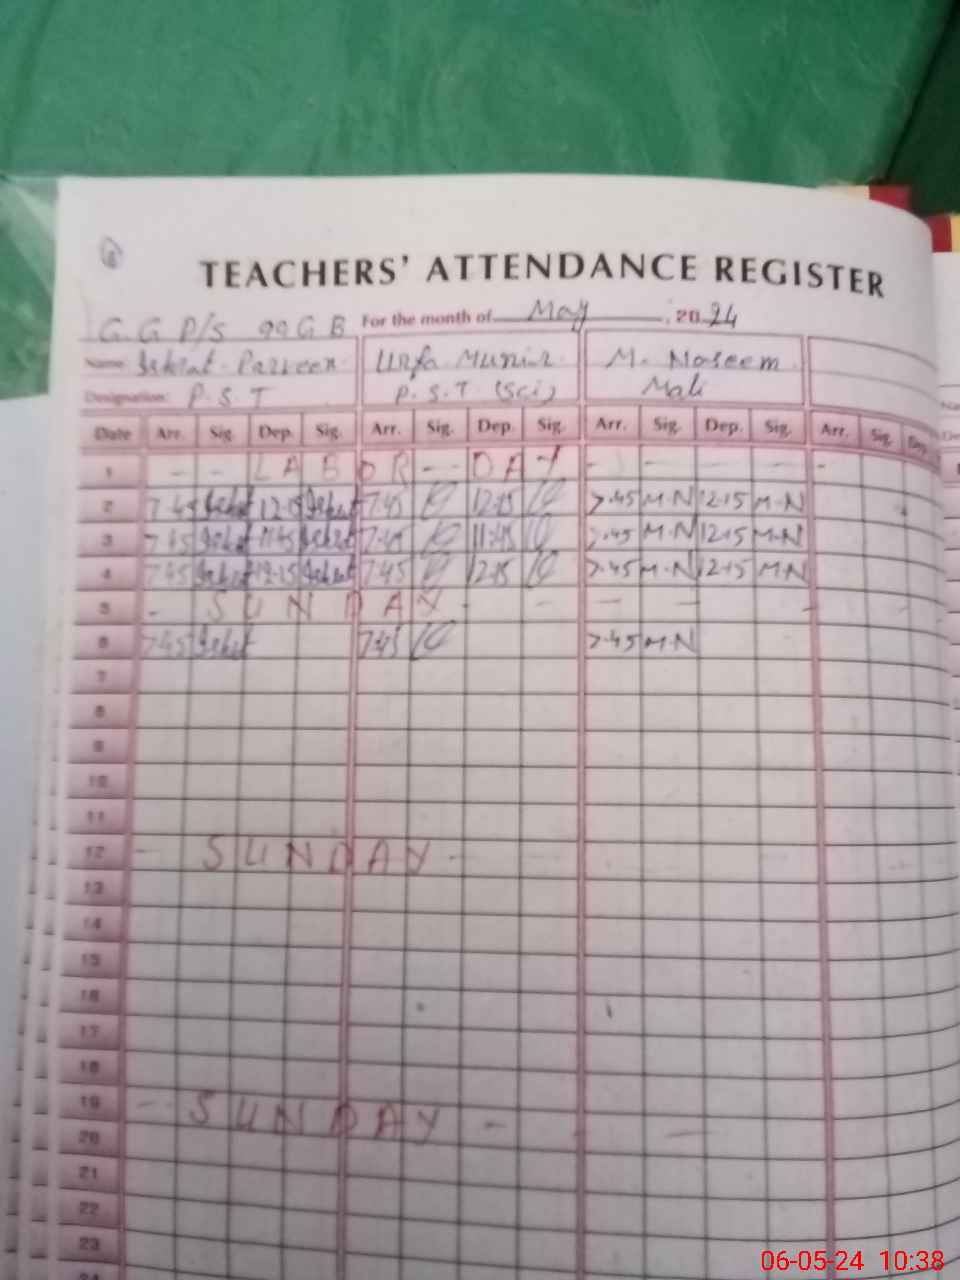 TEACHERS' ATTENDANCE REGISTER
G. G P/S 99 G B For the month of May, 2024
Name Ishrat Parveen Urfa Munir M. Naseem
Designation: P.S.T P.S.T (Sci) Mali
Date Arr. Sig. Dep. Sig. Arr. Sig. Dep. Sig. Arr. Sig. Dep. Sig. Arr. Sig. Dep.
1 - - LABOR - - DAY - - - - -
2 7.45 Ishrat 12.15 Ishrat 7.45 12.15 7.45 M.N 12.15 M.N
3 7.45 Ishrat 11.45 Ishrat 7.45 11.45 7.45 M.N 12.15 M.N
4 7.45 Ishrat 12.15 Ishrat 7.45 12.15 7.45 M.N 12.15 M.N
5 - SUNDAY - - - -
6 7.45 Ishrat 7.45 7.45 M.N
7
8
9
10
11
12 - SUNDAY -
13
14
15
16
17
18
19 - SUNDAY -
20
21
22
23
24
06-05-24 10:38